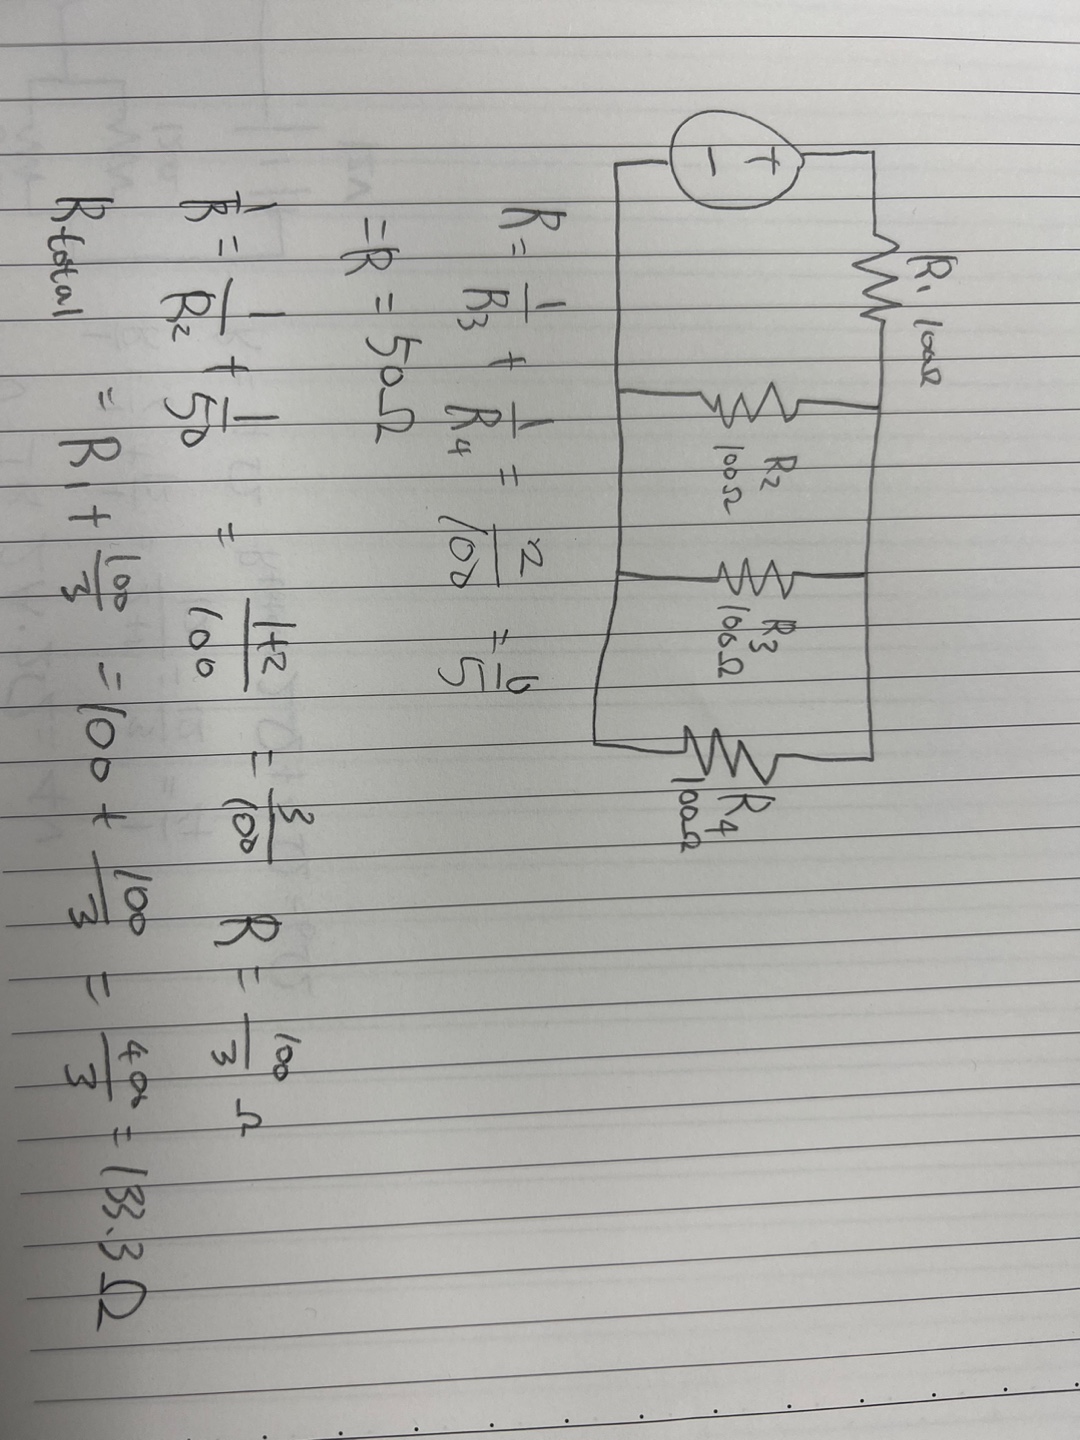 + −
R1 100Ω
R2
100Ω
R3
100Ω
R4
100Ω
R = 1/R3 + 1/R4 = 2/100 = 1/5
= R = 50Ω
1/R = 1/R2 + 1/50 = 1+2/100 = 3/100 R = 100/3 Ω
Rtotal = R1 + 100/3 = 100 + 100/3 = 400/3 = 133.3Ω